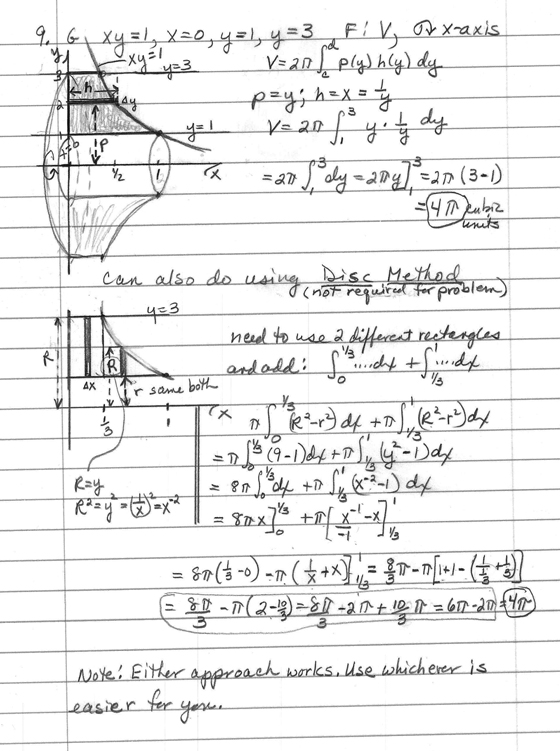 9. G xy=1, x=0, y=1, y=3 F: V, ↻ x-axis
y
xy=1
y=3
3
h
2
Δy
P
y=1
½
1
x
V=2π∫_c^d p(y)h(y) dy
p=y; h=x=1/y
V=2π∫_1^3 y·1/y dy
=2π∫_1^3 dy=2πy]_1^3=2π(3-1)
=4π cubic units
Can also do using Disc Method
(not required for problem)
y=3
R
R
Δx
r same both
1/3
1
x
R=y
R²=y²=(1/x)²=x⁻²
need to use 2 different rectangles
and add: ∫_0^{1/3} ....dx + ∫_{1/3}^1 ....dx
π∫_0^{1/3}(R²-r²)dx +π∫_{1/3}^1(R²-r²)dx
=π∫_0^{1/3}(9-1)dx+π∫_{1/3}^1(y²-1)dx
=8π∫_0^{1/3}dx +π∫_{1/3}^1(x⁻²-1)dx
=8πx]_0^{1/3} +π[x⁻¹/-1 -x]_{1/3}^1
=8π(1/3-0)-π(1/x+x)]_{1/3}^1=8/3π-π[1+1-(1/⅓+1/3)]
=8π/3-π(2-10/3)=8π/3-2π+10/3π=6π-2π=4π
Note: Either approach works. Use whichever is
easier for you.